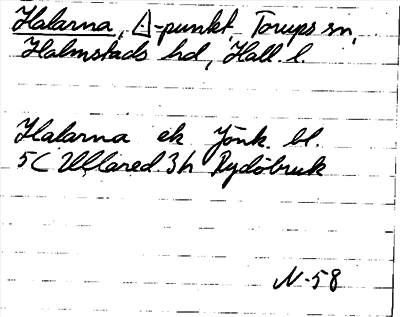 Halarna, △-punkt, Torups sn,
Halmstads hd, Hall. l.
Halarna ek Jönk. bl.
5C Ullared 3h Rydöbruk
N-58